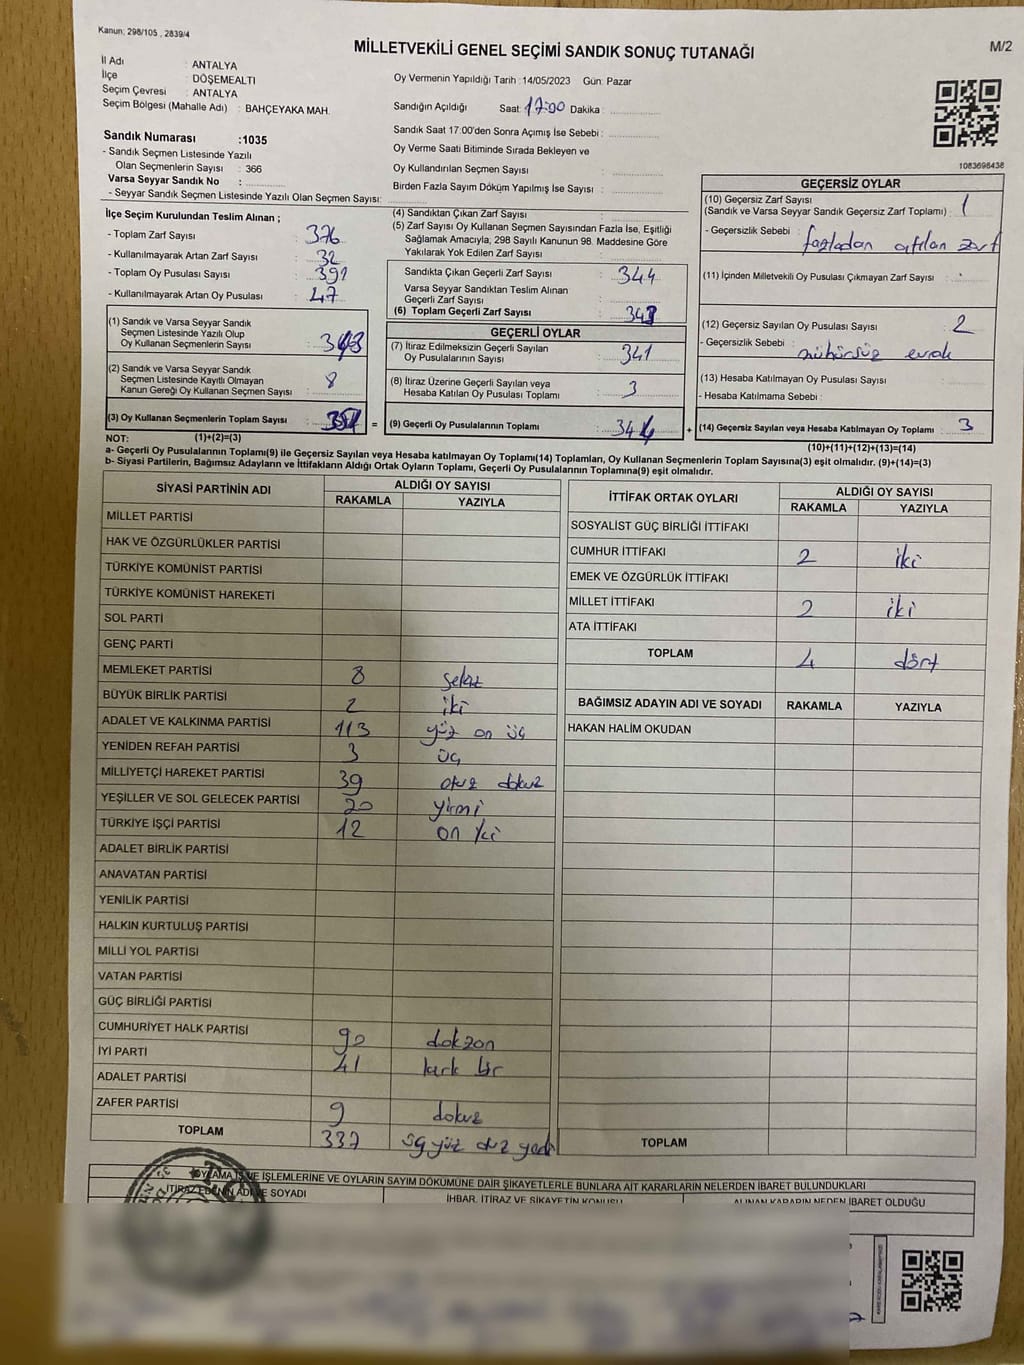 Kanun; 298/105 , 2839/4
MİLLETVEKİLİ GENEL SEÇİMİ SANDIK SONUÇ TUTANAĞI
M/2
İl Adı : ANTALYA
İlçe : DÖŞEMEALTI
Seçim Çevresi : ANTALYA
Seçim Bölgesi (Mahalle Adı) : BAHÇEYAKA MAH.
Sandık Numarası :1035
- Sandık Seçmen Listesinde Yazılı
Olan Seçmenlerin Sayısı : 366
Varsa Seyyar Sandık No :
- Seyyar Sandık Seçmen Listesinde Yazılı Olan Seçmen Sayısı:
Oy Vermenin Yapıldığı Tarih :14/05/2023 Gün: Pazar
Sandığın Açıldığı Saat: 17:00 Dakika :
Sandık Saat 17:00'den Sonra Açımış İse Sebebi :
Oy Verme Saati Bitiminde Sırada Bekleyen ve
Oy Kullandırılan Seçmen Sayısı :
Birden Fazla Sayım Döküm Yapılmış İse Sayısı :
1083698438
İlçe Seçim Kurulundan Teslim Alınan ;
- Toplam Zarf Sayısı : 376
- Kullanılmayarak Artan Zarf Sayısı : 32
- Toplam Oy Pusulası Sayısı : 391
- Kullanılmayarak Artan Oy Pusulası : 47
(1) Sandık ve Varsa Seyyar Sandık
Seçmen Listesinde Yazılı Olup
Oy Kullanan Seçmenlerin Sayısı :
(2) Sandık ve Varsa Seyyar Sandık
Seçmen Listesinde Kayıtlı Olmayan
Kanun Gereği Oy Kullanan Seçmen Sayısı : 8
(3) Oy Kullanan Seçmenlerin Toplam Sayısı :
(4) Sandıktan Çıkan Zarf Sayısı :
(5) Zarf Sayısı Oy Kullanan Seçmen Sayısından Fazla İse, Eşitliği
Sağlamak Amacıyla; 298 Sayılı Kanunun 98. Maddesine Göre
Yakılarak Yok Edilen Zarf Sayısı :
Sandıkta Çıkan Geçerli Zarf Sayısı : 344
Varsa Seyyar Sandıktan Teslim Alınan
Geçerli Zarf Sayısı :
(6) Toplam Geçerli Zarf Sayısı :
GEÇERLİ OYLAR
(7) İtiraz Edilmeksizin Geçerli Sayılan
Oy Pusulalarının Sayısı : 341
(8) İtiraz Üzerine Geçerli Sayılan veya
Hesaba Katılan Oy Pusulası Toplamı : 3
= (9) Geçerli Oy Pusulalarının Toplamı : 344
GEÇERSİZ OYLAR
(10) Geçersiz Zarf Sayısı
(Sandık ve Varsa Seyyar Sandık Geçersiz Zarf Toplamı) : 1
- Geçersizlik Sebebi : fazladan atılan zarf
(11) İçinden Milletvekili Oy Pusulası Çıkmayan Zarf Sayısı :
(12) Geçersiz Sayılan Oy Pusulası Sayısı : 2
- Geçersizlik Sebebi : mühürsüz evrak
(13) Hesaba Katılmayan Oy Pusulası Sayısı :
- Hesaba Katılmama Sebebi :
+ (14) Geçersiz Sayılan veya Hesaba Katılmayan Oy Toplamı : 3
NOT: (1)+(2)=(3) (10)+(11)+(12)+(13)=(14)
a- Geçerli Oy Pusulalarının Toplamı(9) ile Geçersiz Sayılan veya Hesaba katılmayan Oy Toplamı(14) Toplamları, Oy Kullanan Seçmenlerin Toplam Sayısına(3) eşit olmalıdır. (9)+(14)=(3)
b- Siyasi Partilerin, Bağımsız Adayların ve İttifakların Aldığı Ortak Oyların Toplamı, Geçerli Oy Pusulalarının Toplamına(9) eşit olmalıdır.
SİYASİ PARTİNİN ADI ALDIĞI OY SAYISI
RAKAMLA YAZIYLA
MİLLET PARTİSİ
HAK VE ÖZGÜRLÜKLER PARTİSİ
TÜRKİYE KOMÜNİST PARTİSİ
TÜRKİYE KOMÜNİST HAREKETİ
SOL PARTİ
GENÇ PARTİ
MEMLEKET PARTİSİ 8 sekiz
BÜYÜK BİRLİK PARTİSİ 2 iki
ADALET VE KALKINMA PARTİSİ 113 yüz on üç
YENİDEN REFAH PARTİSİ 3 üç
MİLLİYETÇİ HAREKET PARTİSİ 39 otuz dokuz
YEŞİLLER VE SOL GELECEK PARTİSİ 20 yirmi
TÜRKİYE İŞÇİ PARTİSİ 12 on iki
ADALET BİRLİK PARTİSİ
ANAVATAN PARTİSİ
YENİLİK PARTİSİ
HALKIN KURTULUŞ PARTİSİ
MİLLİ YOL PARTİSİ
VATAN PARTİSİ
GÜÇ BİRLİĞİ PARTİSİ
CUMHURİYET HALK PARTİSİ 90 dokzon
İYİ PARTİ 41 kırk bir
ADALET PARTİSİ
ZAFER PARTİSİ 9 dokuz
TOPLAM 337 üç yüz otuz yedi
İTTİFAK ORTAK OYLARI ALDIĞI OY SAYISI
RAKAMLA YAZIYLA
SOSYALİST GÜÇ BİRLİĞİ İTTİFAKI
CUMHUR İTTİFAKI 2 iki
EMEK VE ÖZGÜRLÜK İTTİFAKI
MİLLET İTTİFAKI 2 iki
ATA İTTİFAKI
TOPLAM 4 dört
BAĞIMSIZ ADAYIN ADI VE SOYADI RAKAMLA YAZIYLA
HAKAN HALİM OKUDAN
TOPLAM
OYLAMA İŞ VE İŞLEMLERİNE VE OYLARIN SAYIM DÖKÜMÜNE DAİR ŞİKAYETLERLE BUNLARA AİT KARARLARIN NELERDEN İBARET BULUNDUKLARI
İTİRAZ EDENİN ADI VE SOYADI İHBAR, İTİRAZ VE ŞİKAYETİN KONUSU ALINAN KARARIN NEDEN İBARET OLDUĞU